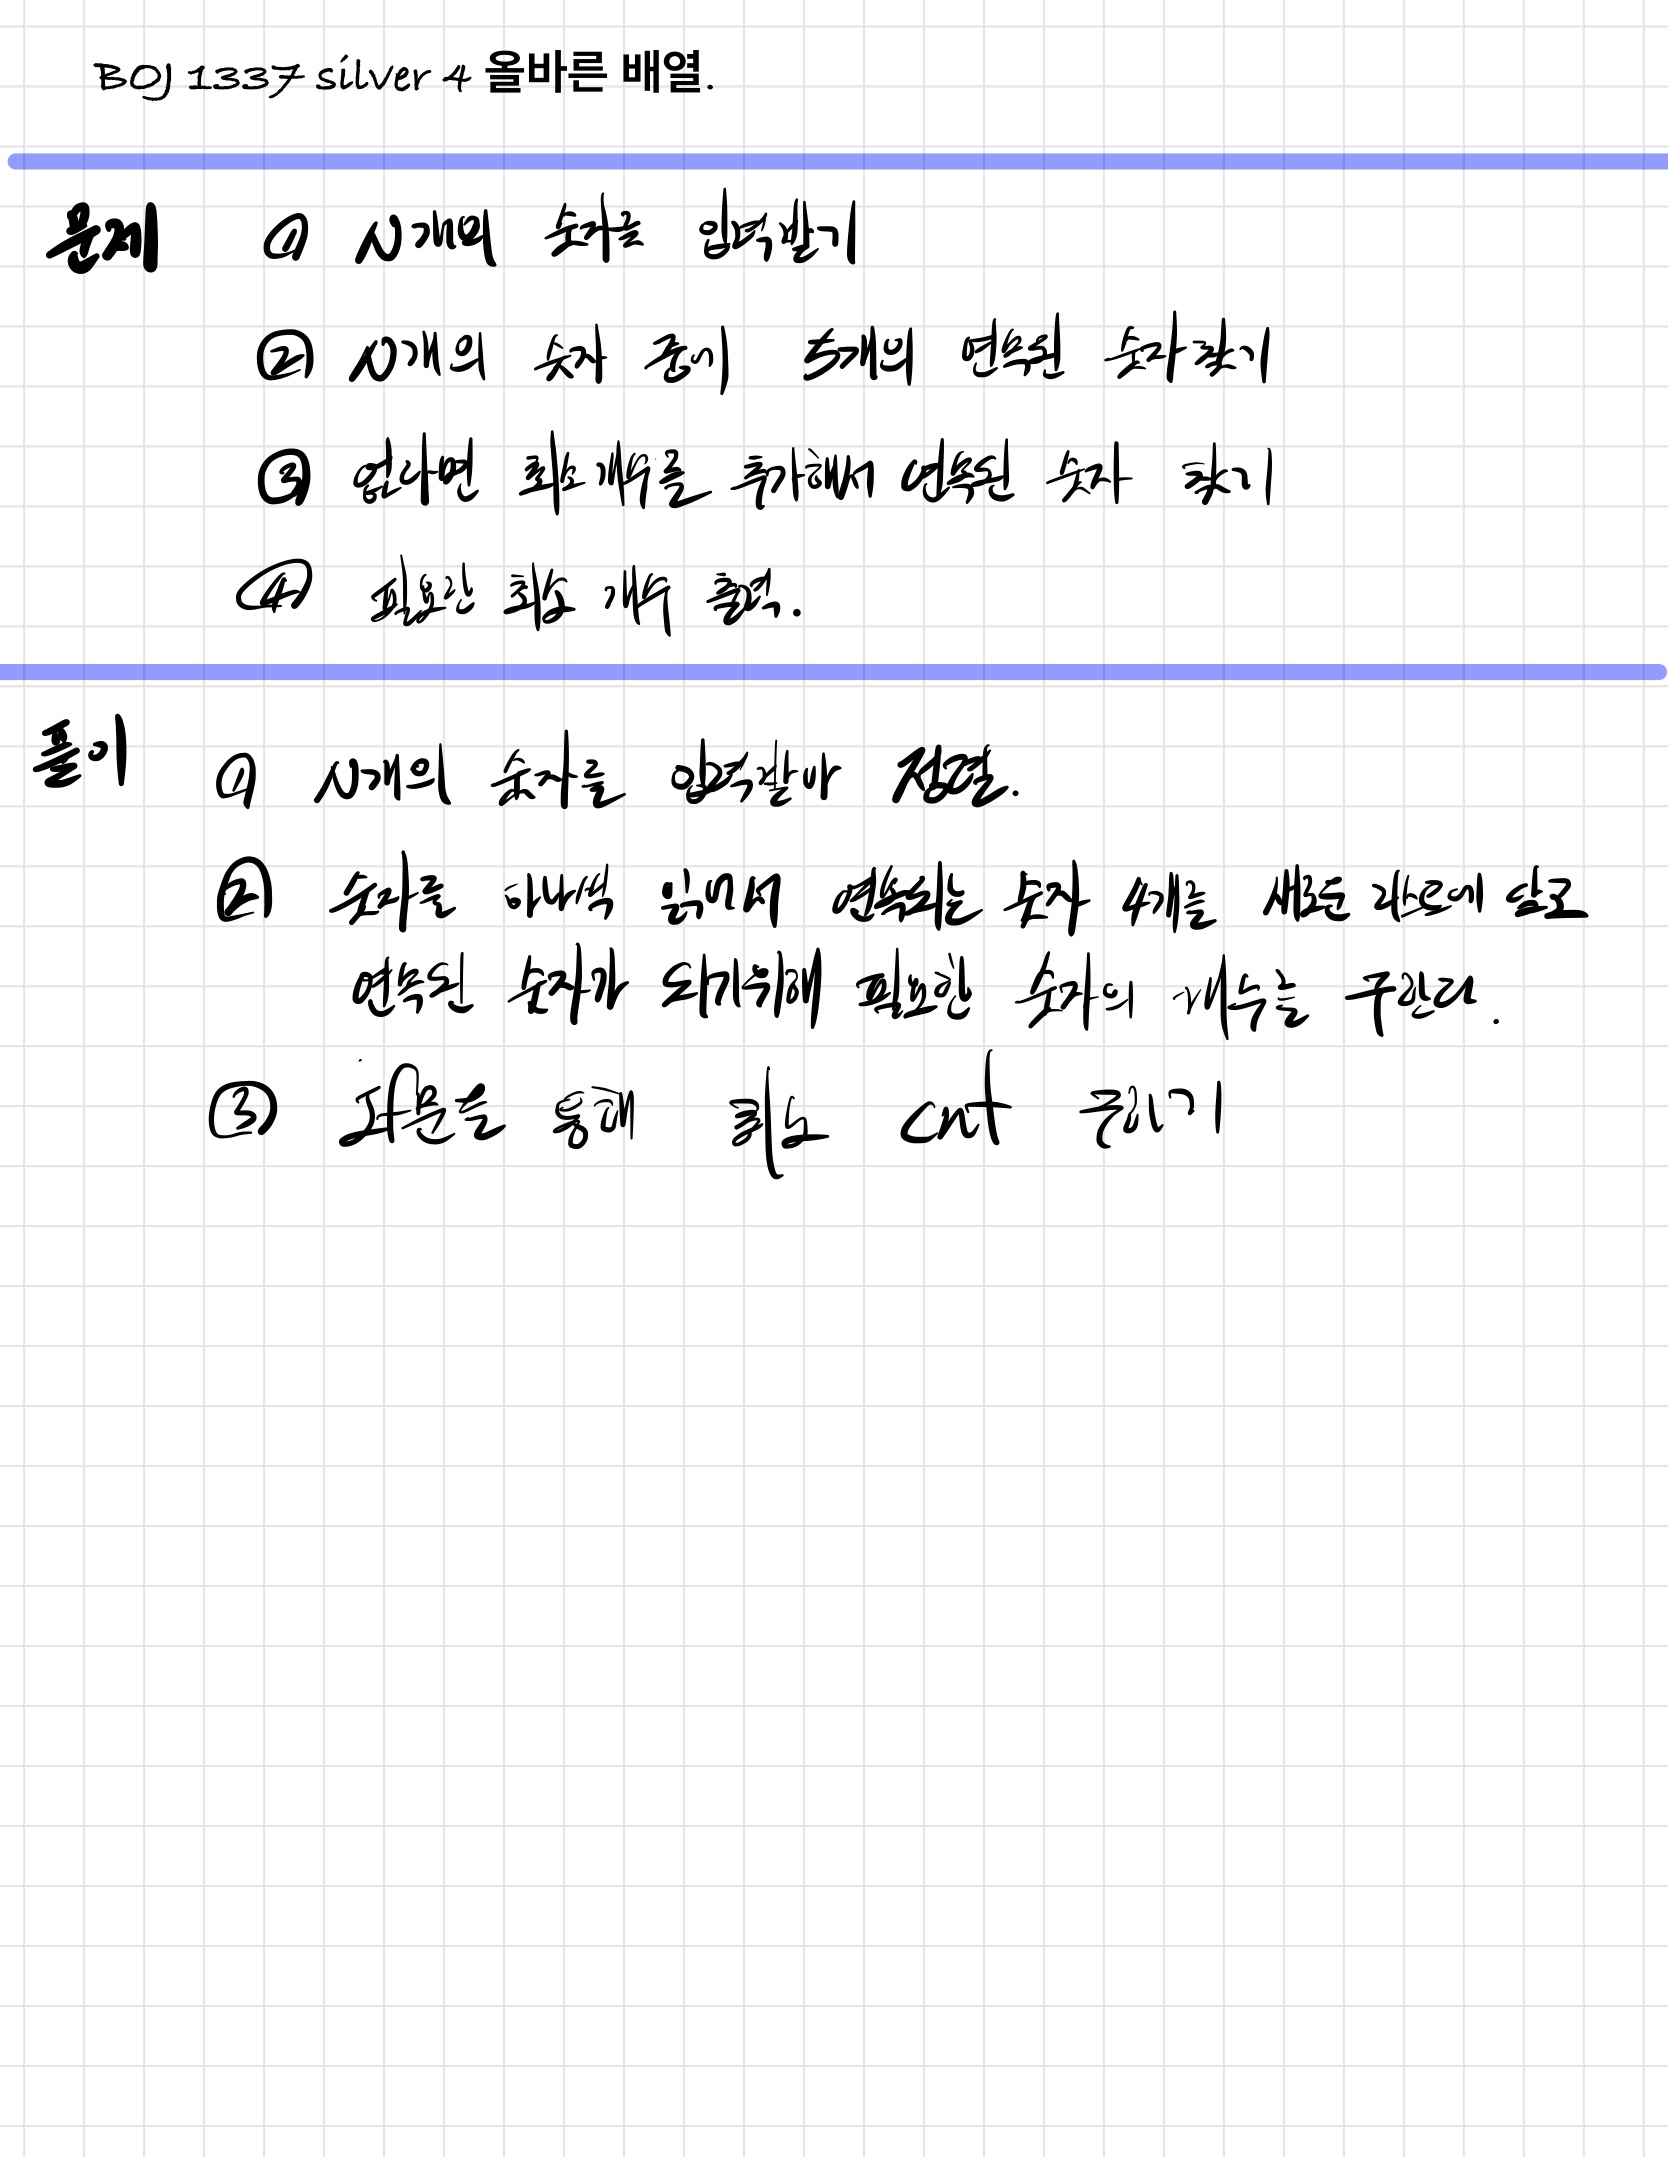 BOJ 1337 silver 4 올바른 배열.
문제 ① N개의 숫자를 입력받기
② N개의 숫자 중에 5개의 연속된 숫자찾기
③ 없다면 최소개수를 추가해서 연속된 숫자 찾기
④ 필요한 최소 개수 출력.
풀이 ① N개의 숫자를 입력받아 정렬.
② 숫자를 하나씩 읽으며서 연속되는 숫자 4개를 새로운 리스트에 담고
연속된 숫자가 되기위해 필요한 숫자의 개수를 구한다.
③ If문을 통해 최소 cnt 구하기